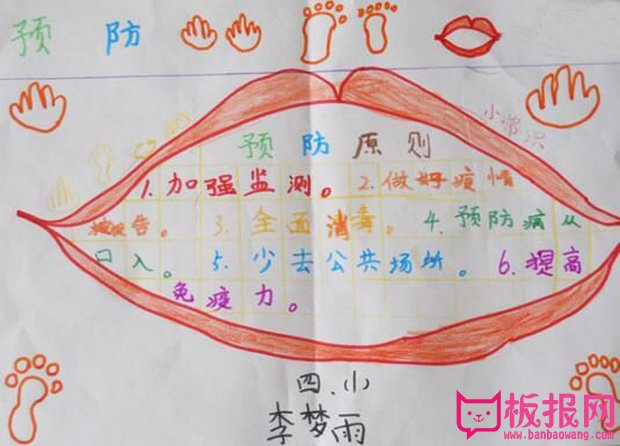 预 防
小常识
预防原则
1.加强监测。2.做好疫情
被报告。3.全面消毒。4.预防病从
口入。5.少去公共场所。6.提高
免疫力。
四.小
李梦雨
板报网
www.banbaowang.com